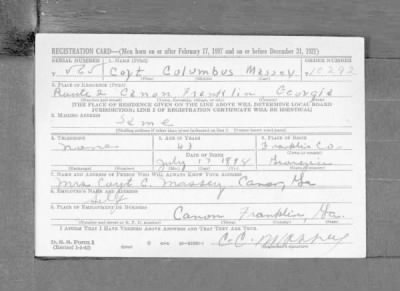 REGISTRATION CARD—(Men born on or after February 17, 1897 and on or before December 31, 1921)
SERIAL NUMBER 1. NAME (Print) ORDER NUMBER
T Capt Columbus Massey 10292
(First) (Middle) (Last)
2. PLACE OF RESIDENCE (Print)
Route 2 Canon Franklin Georgia
(Number and street) (Town, township, village, or city) (County) (State)
[THE PLACE OF RESIDENCE GIVEN ON THE LINE ABOVE WILL DETERMINE LOCAL BOARD
JURISDICTION; LINE 2 OF REGISTRATION CERTIFICATE WILL BE IDENTICAL]
3. MAILING ADDRESS
Same
[Mailing address if other than place indicated on line 2. If same insert word same]
4. TELEPHONE 5. AGE IN YEARS 6. PLACE OF BIRTH
None Franklin Co.
DATE OF BIRTH
July 17 Georgia
7. NAME AND ADDRESS OF PERSON WHO WILL ALWAYS KNOW YOUR ADDRESS
Mrs Capt C. Massey, Canon, Ga
8. EMPLOYER'S NAME AND ADDRESS
Self
9. PLACE OF EMPLOYMENT OR BUSINESS
Canon Franklin, Ga.
(Number and street or R. F. D. number) (Town) (County) (State)
I AFFIRM THAT I HAVE VERIFIED ABOVE ANSWERS AND THAT THEY ARE TRUE.
D. S. S. Form 1
(Revised 1-1-42)
C. C. Massey
(Registrant's signature)